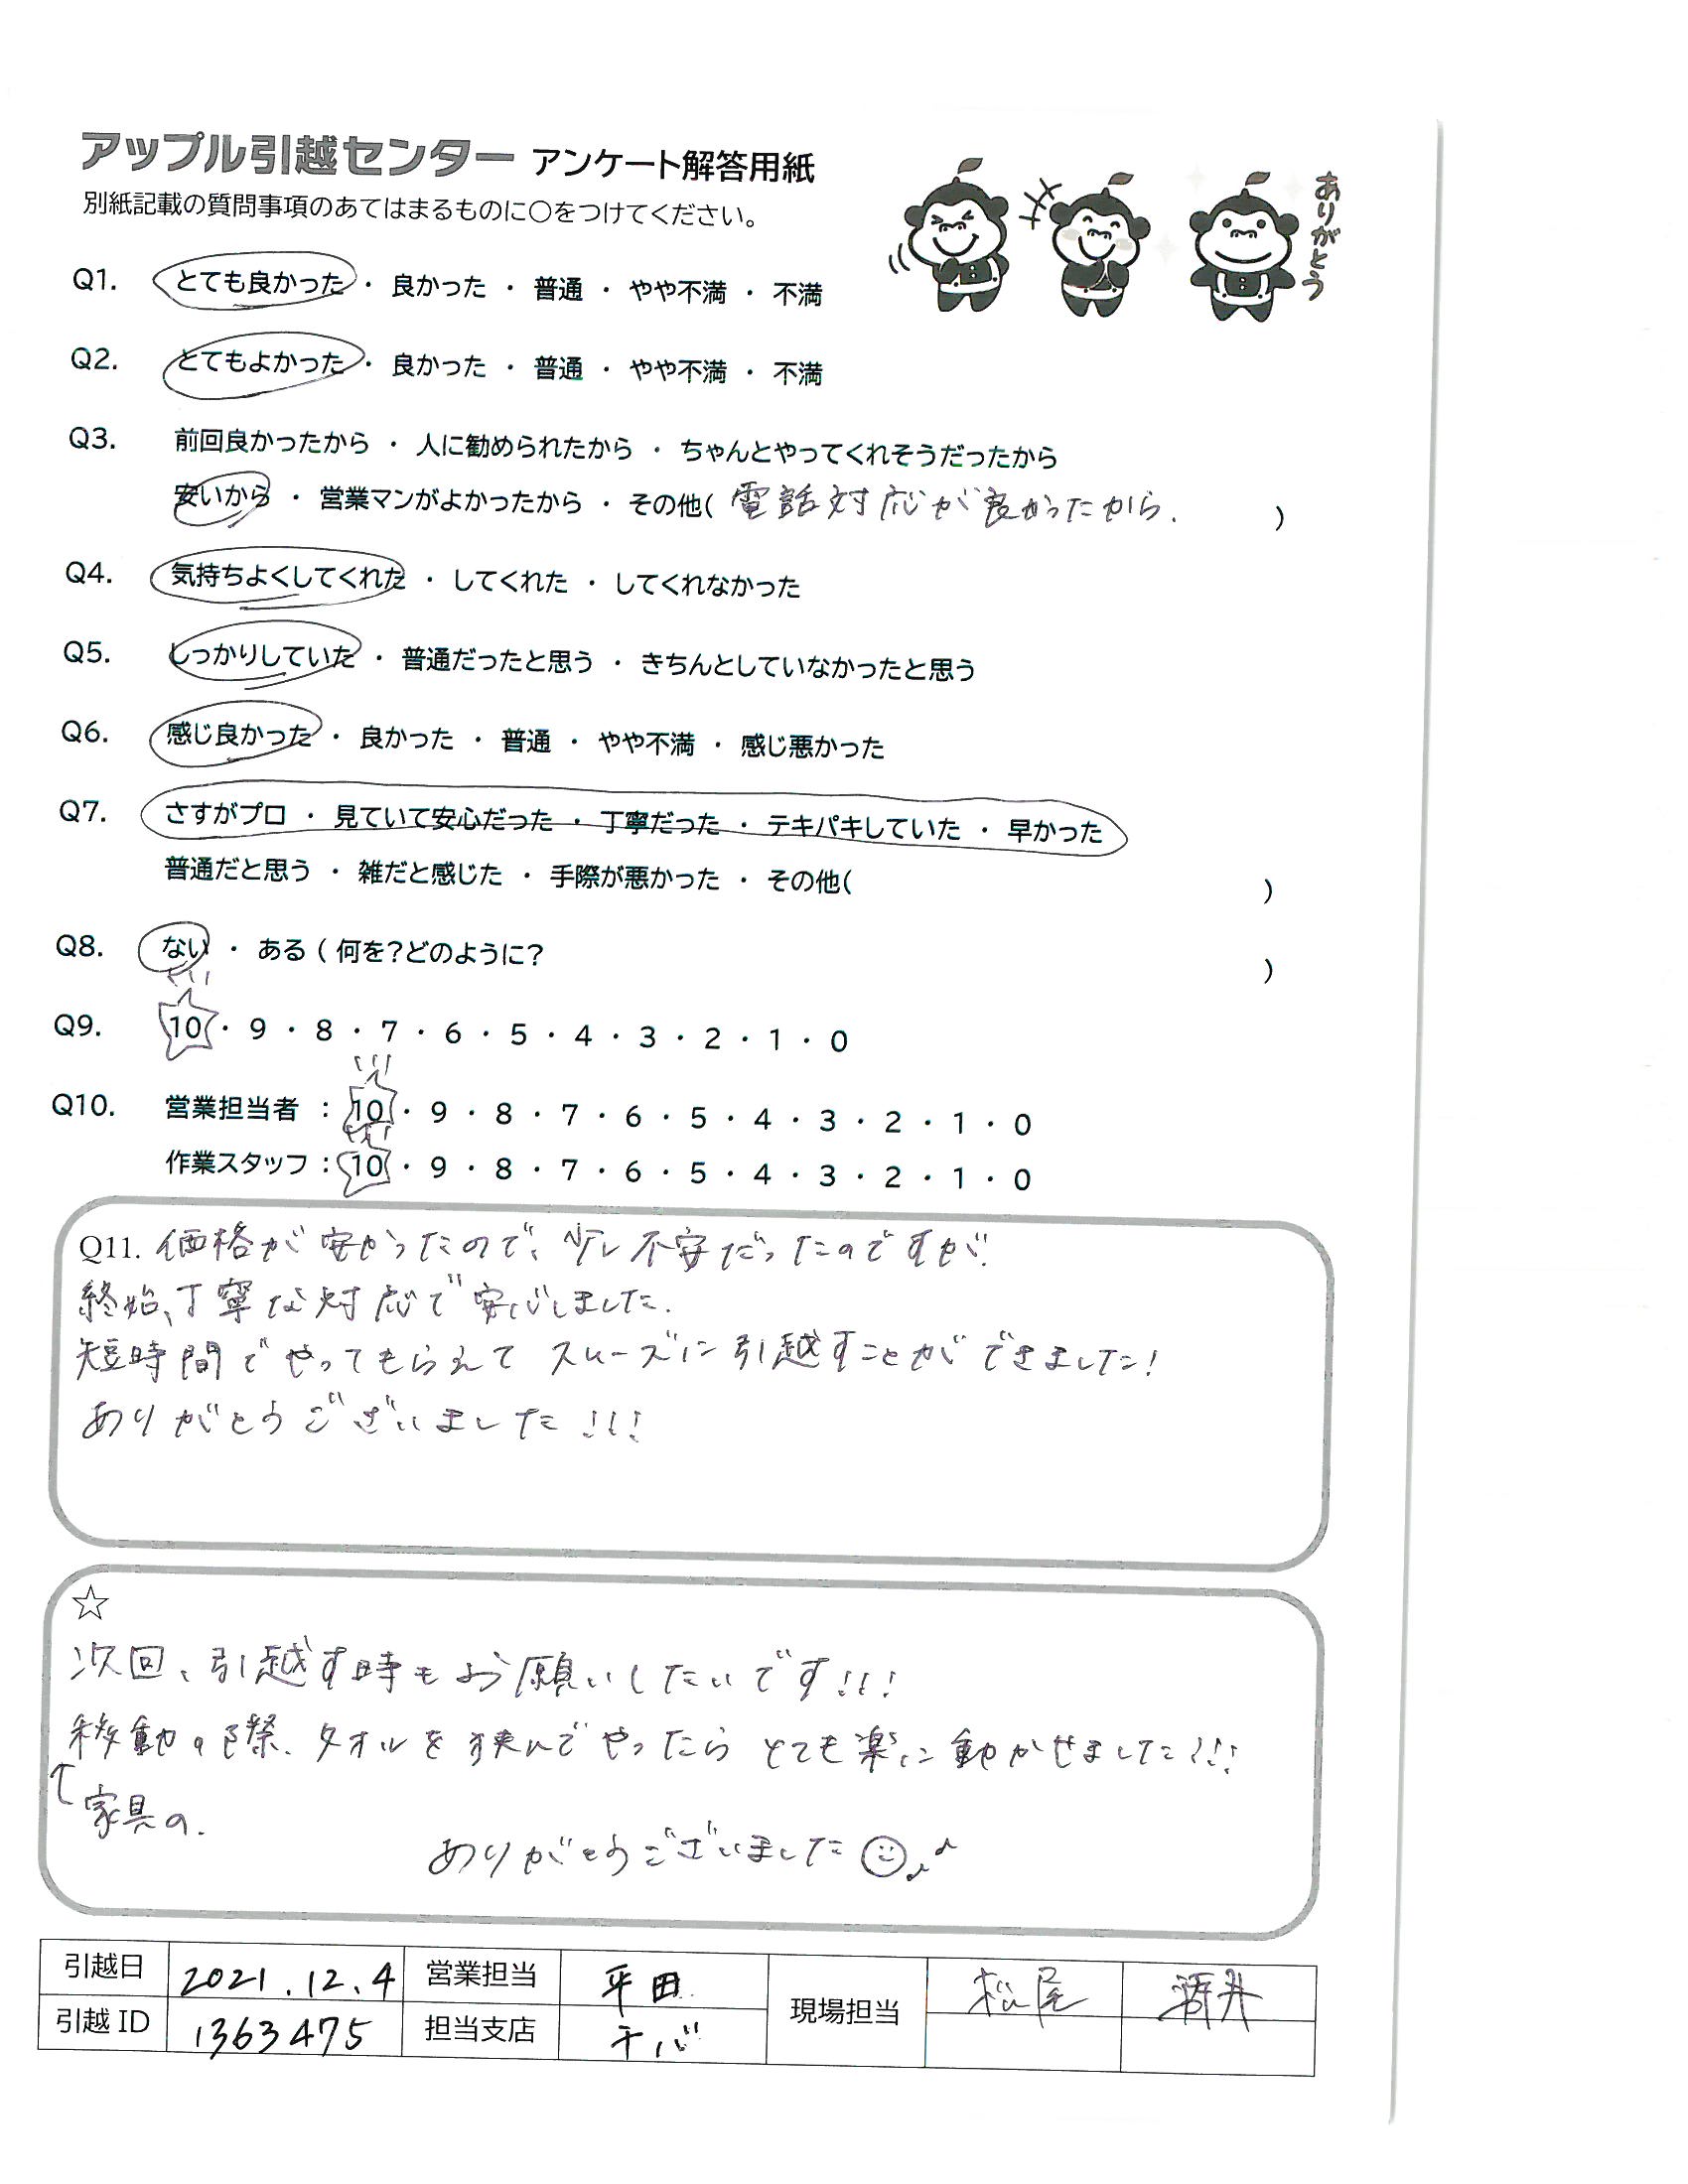 アップル引越センター アンケート解答用紙
ありがとう
別紙記載の質問事項のあてはまるものに○をつけてください。
Q1. とても良かった ・ 良かった ・ 普通 ・ やや不満 ・ 不満
Q2. とてもよかった ・ 良かった ・ 普通 ・ やや不満 ・ 不満
Q3. 前回良かったから ・ 人に勧められたから ・ ちゃんとやってくれそうだったから
安いから ・ 営業マンがよかったから ・ その他( 電話対応が良かったから. )
Q4. 気持ちよくしてくれた ・ してくれた ・ してくれなかった
Q5. しっかりしていた ・ 普通だったと思う ・ きちんとしていなかったと思う
Q6. 感じ良かった ・ 良かった ・ 普通 ・ やや不満 ・ 感じ悪かった
Q7. さすがプロ ・ 見ていて安心だった ・ 丁寧だった ・ テキパキしていた ・ 早かった
普通だと思う ・ 雑だと感じた ・ 手際が悪かった ・ その他( )
Q8. ない ・ ある ( 何を?どのように? )
Q9. 10 ・ 9 ・ 8 ・ 7 ・ 6 ・ 5 ・ 4 ・ 3 ・ 2 ・ 1 ・ 0
Q10. 営業担当者 : 10 ・ 9 ・ 8 ・ 7 ・ 6 ・ 5 ・ 4 ・ 3 ・ 2 ・ 1 ・ 0
作業スタッフ : 10 ・ 9 ・ 8 ・ 7 ・ 6 ・ 5 ・ 4 ・ 3 ・ 2 ・ 1 ・ 0
Q11. 価格が安かったので、少し不安だったのですが.
終始、丁寧な対応で安心しました.
短時間でやってもらえて スムーズに引越すことができました!
ありがとうございました!!!
☆
次回、引越す時もお願いしたいです!!!
移動の際、タオルを挟んでやったら とても楽に動かせました!!!
↑家具の.
ありがとうございました☺♪♪
引越日 2021.12.4 営業担当 平田 現場担当 松尾 酒井
引越 ID 1363475 担当支店 千バ